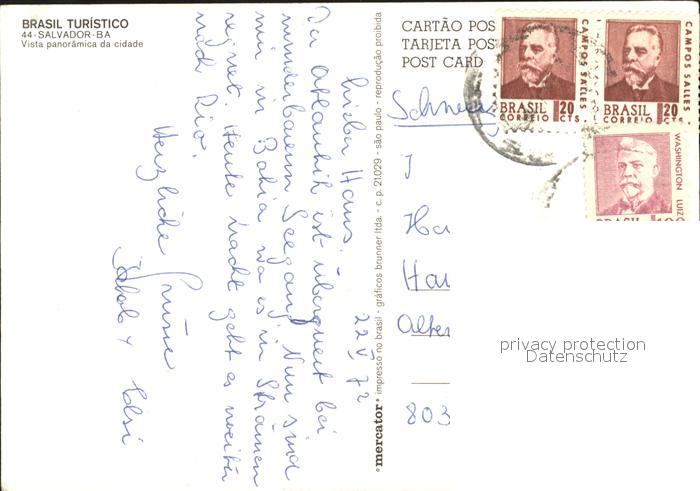 BRASIL TURÍSTICO
44-SALVADOR-BA
Vista panorâmica da cidade
22 V 72
Lieber Hans.
Der Atlantik ist überquert bei
wunderbarem Seegang. Nun sind
wir in Bahia wo es in Strömen
regnet. Heute Nacht geht es weiter
nach Rio.
Herzliche Grüsse
Jakob + Elsi
•mercator• impresso no brasil - gráficos brunner ltda. - c. p. 21.029 - são paulo - reprodução proibida
CARTÃO POS
TARJETA POST
POST CARD
BRASIL 20
CORREIO CTS.
CAMPOS SALLES
BRASIL 20
CORREIO CTS.
CAMPOS SALLES
WASHINGTON LUIZ
BRASIL
Schwei
Ha
Hau
Alte
803
privacy protection
Datenschutz